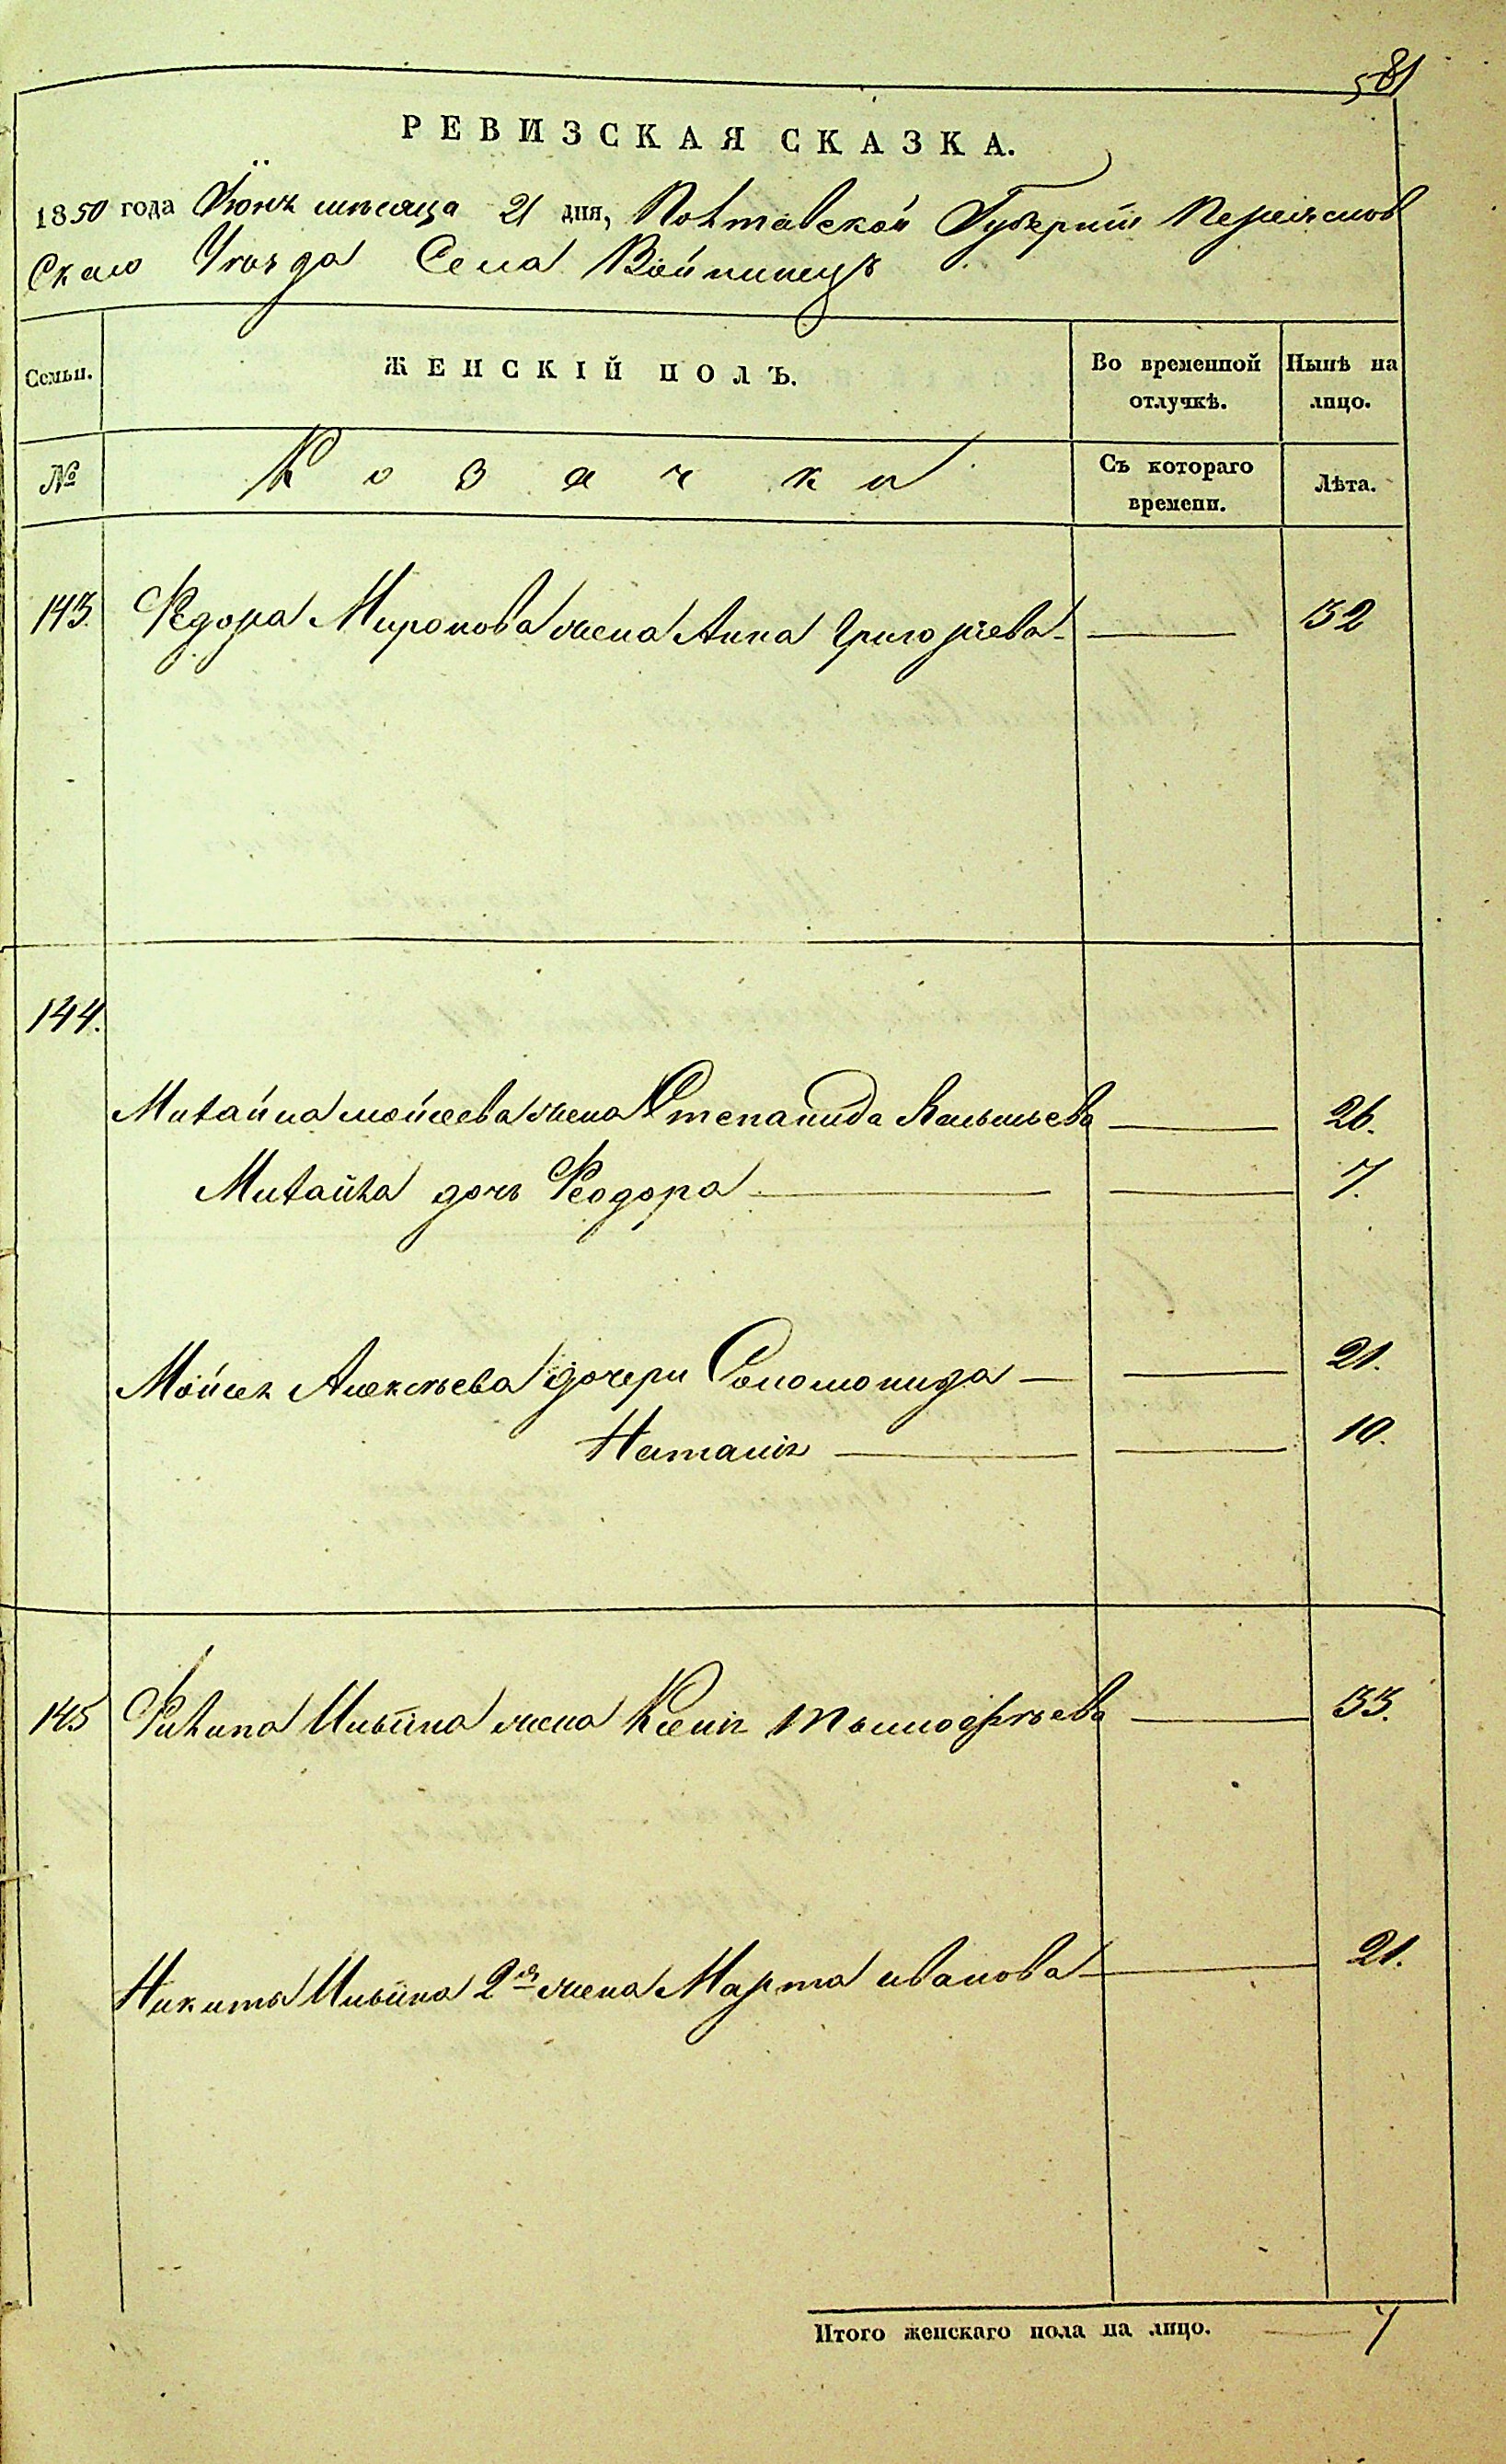 581
РЕВИЗСКАЯ СКАЗКА.
1850 года Іюня мѣсяца 21 дня, Полтавской Губерніи Переяслов
скаго Уѣзда Села Войтинецъ
Семьи.
ЖЕНСКІЙ ПОЛЪ.
Во временной отлучкѣ.
Нынѣ на лицо.
№
Козачки
Съ котораго времени.
Лѣта.
143. Федора Миронова жена Анна Григоріева 52
144.
Михайла Мойсеева жена Степанида 26.
Михайла дочь Феодора 7.
Мойсея Алексѣева дочери Соломонида 21.
Наталія 10.
145 Филипа Ильина жена Ксенія Тымофѣева 33.
Никиты Ильина 2я жена Марта Иванова 21.
Итого женскаго пола на лицо. 7